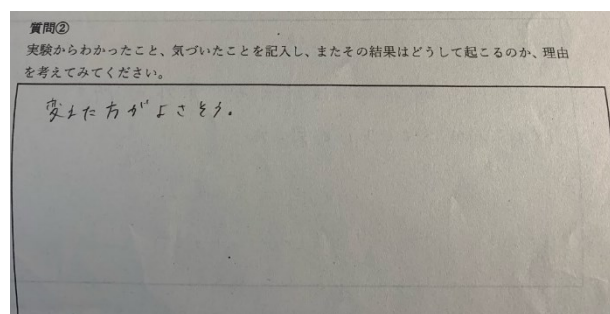 質問②
実験からわかったこと、気づいたことを記入し、またその結果はどうして起こるのか、理由
を考えてみてください。
変えた方がよさそう。